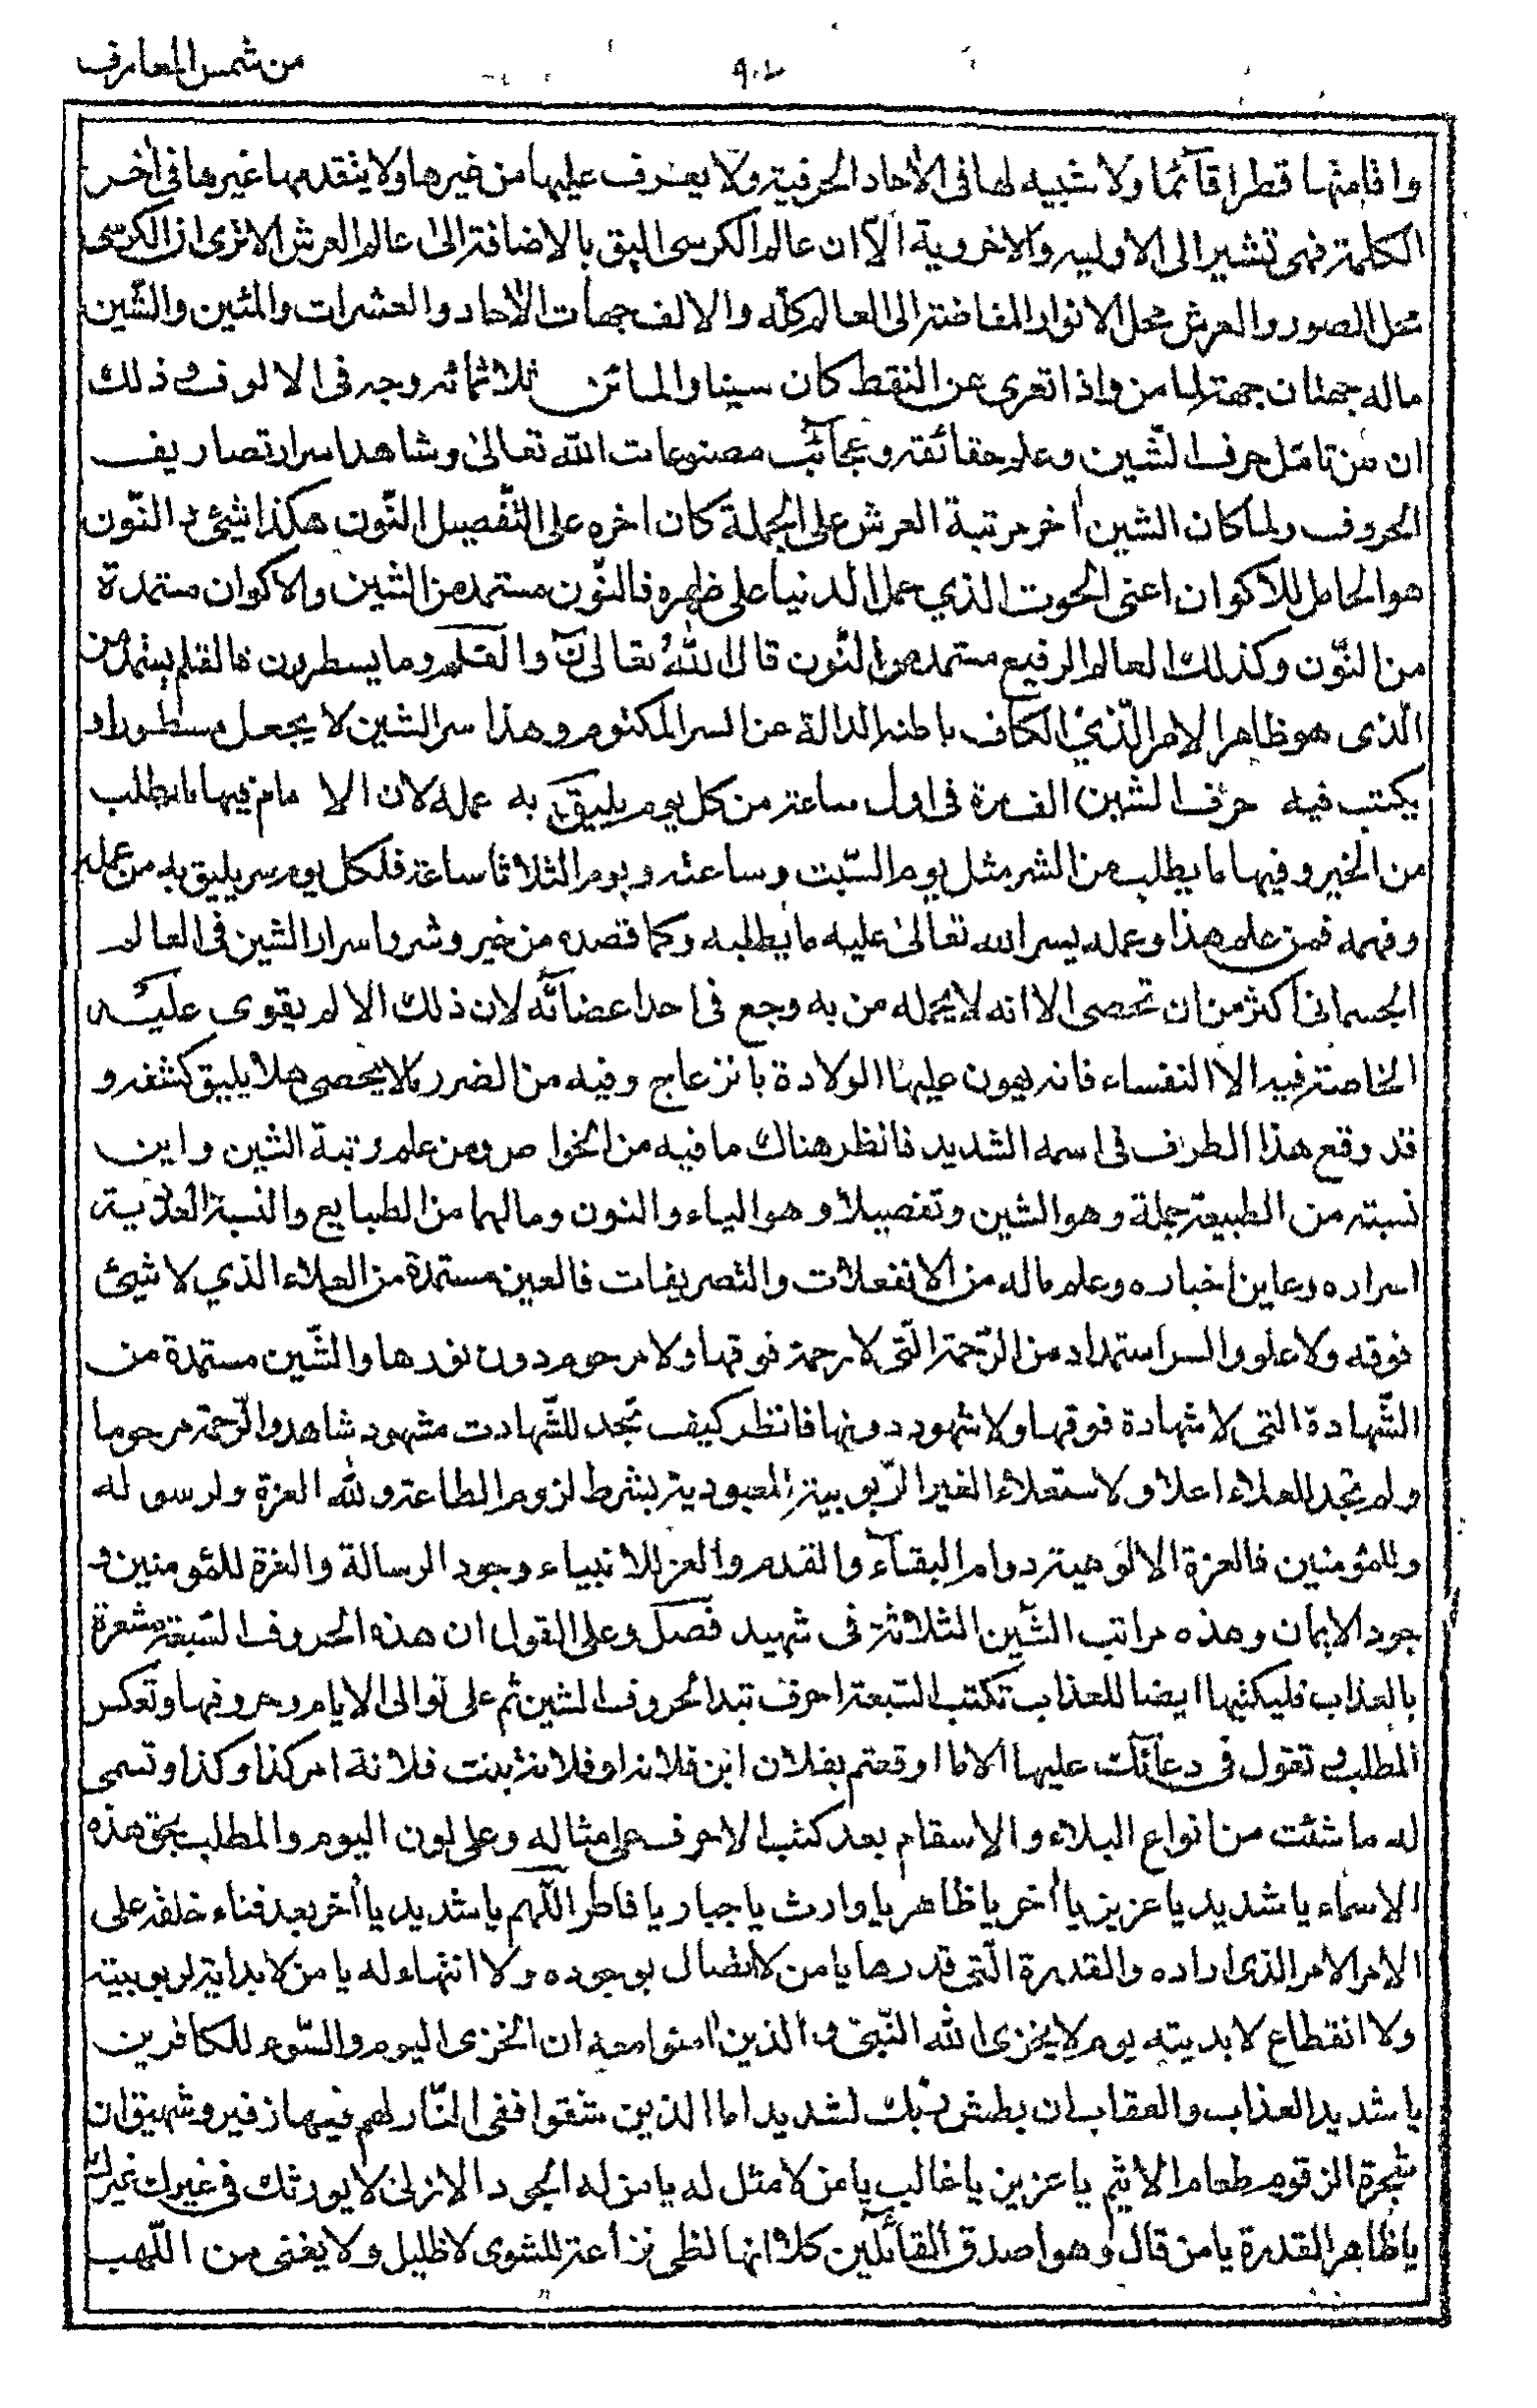 من شمس المعارف
٩٠٢
واقامتها قطرا قآئما ولا شبيه لها فى الأحاد الحرفية ولا يعترف عليها من غيرها ولا يتقدمها غيرها فى أخر
الكلمة فهى تشير الى الأولية والاخروية الّا ان عالم الكرسى اليق بالاضافة الى عالم العرش الا ترى ان الكرسى
محل الصور والعرش محل الانوار المفاضة الى العالم كلّه والالف جهات الأحاد والعشرات والمئين والشّين
ماله جهتان جهة لها من واذا تعرى عن النقط كان سينا والمائتن ثلاثمائه وجه فى الالوف و ذلك
ان من تامّل حرف الشّين وعلم حقائقه وعجآئب مصنوعات الله تعالىٰ وشاهد اسرار تصاريف
الحروف ولما كان الشين أخر مرتبة العرش على الجملة كان اخره على التّفصيل النّون هكذا شيئ ن النّون
هو الحامل للاكوان اعنى الحوت الذي حمل الدنيا على ظهره فالنّون مستمد من الشين والاكوان مستمدة
من النّون وكذلك العالم الرفيع مستمد من النّون قال اللهُ تعالىٰ نٓ والقلم وما يسطرون فالقلم يستمد من
الّذى هو ظاهر الامر الّذي الكاف باطنه الدالة عن السر المكتوم وهذا سر الشين لا يجعل مسطورا و
يكتب فيه حرف الشين الف مرة فى اول ساعة من كل يوم يليق به عمله لان الا مام فيها ما يطلب
من الخير وفيها ما يطلب من الشر مثل يوم السّبت وساعته ويوم الثلاثا ساعة فلكل يوم سر يليق به من عمله
وفهمه فمن علم هذا وعمله يسر الله تعالىٰ عليه ما يطلبه وكما قصده من خير وشر واسرار الشين فى العالم
الجسمانى أكثر من ان تحصى الا انه لا يحمله من به وجع فى احد اعضائه لان ذلك الا لم يقوى عليه
الخاصة فيه الا النفساء فانه يهون عليها الولادة بانزعاج وفيه من الضرر مالا يحصى هلا يليق كشفه و
قد وقع هذا الطرف فى اسمه الشديد فانظر هناك ما فيه من الخواص ومن علم رتبة الشين واين
نسبته من الطبيعة جملة وهو الشين وتفصيلا وهو الياء والنون وما لهما من الطبايع والنسبة العددية
اسراره وعاين اخباره وعلم ماله من الانفعلات والتصريفات فالعين مستمدة من العلاء الذي لا شيئ
فوقه ولا علو والسر استمداد من الرّحمة الّتى لا رحمة فوقها ولا مرحوم دون نورها والشّين مستمدة من
الشّهادة التى لا شهادة فوقها ولا شهود دونها فانظر كيف تجد للشّهادت مشهود شاهد والرّحمة مرحوما
ولم تجد للعلاء اعلا ولا ستعلاء الغير الرّبوبية المعبودية بشرط لزوم الطاعة ولله العزة ولرسوله
وللمؤمنين فالعزة الالوهية دوام البقآء والقدم والعز للانبياء وجود الرسالة والعزة للمؤمنين و
جود الايمان وهذه مراتب الشّين الثلاثة فى شهيد فصل وعلى القول ان هذه الحروف السّبعة مشعرة
بالعذاب فليكتبها ايضا للعذاب تكتب السّبعة احرف تبدا بحروف الشين ثم على توالى الايام وحروفها وتعكس
المطلب و تقول فى دعآئك عليها الاما اوقعتم بفلان ابن فلانه او فلانة بنت فلانة امر كذا وكذا وتسمى
له ما شئت من انواع البلاء والاسقام بعد كتب الاحرف على مثاله وعلى لون اليوم والمطلب بحق هذه
الاسماء يا شديد يا عزيز يا أخر يا ظاهر يا وارث يا جبار يا فاطر اللّهم يا شديد يا أخر بعد فناء خلقه على
الامر الامر الذى اراده والقدرة الّتى قدرها يا من لا انفصال بوجوده ولا انتهاء له يا من لا بداية لربوبيته
ولا انقطاع لابديته يوم لا يخزى الله النّبىّ و الذين امنوا معه ان الخزى اليوم والسّوء للكافرين
يا شديد العذاب والعقاب ان بطش ربك لشديد اما الذين شقوا ففى النّار لهم فيها زفير وشهيق ان
شجرة الزقوم طعام الاثيم يا عزيز يا غالب يا من لا مثل له يا من له الجود الازلى لا يورثك فى غيرك غيرك
يا ظاهر القدرة يا من قال وهو اصدق القآئلين كلا انها لظى نزاعة للشوى لا ظليل ولا يغنى من اللّهب